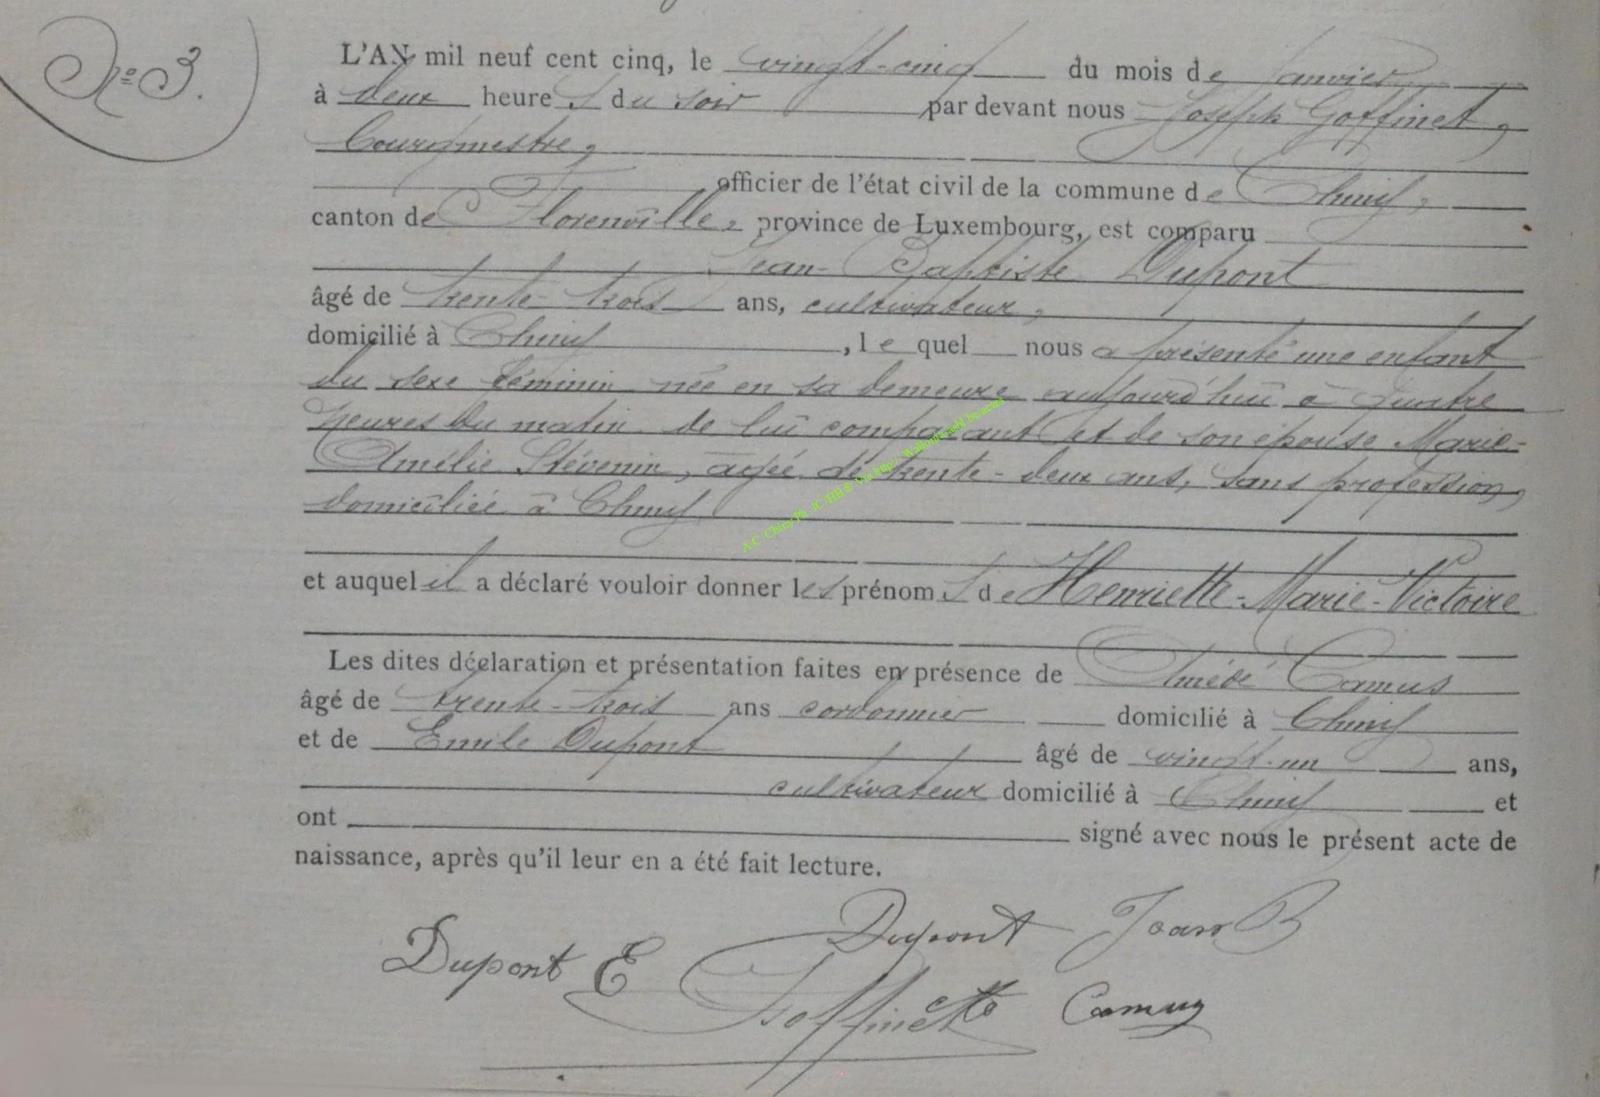 N° 3.
L'AN mil neuf cent cinq, le vingt-cinq du mois de janvier
à deux heures du soir par devant nous Joseph Goffinet,
bourgmestre,
officier de l'état civil de la commune de Chiny,
canton de Florenville, province de Luxembourg, est comparu
Jean-Baptiste Dupont
âgé de trente-trois ans, cultivateur,
domicilié à Chiny, lequel nous a présenté une enfant
du sexe féminin née en sa demeure aujourd'hui à quatre
heures du matin de lui comparant et de son épouse Marie-
Amélie Stévenin, agée de trente-deux ans, sans profession,
domiciliée à Chiny
et auquel il a déclaré vouloir donner les prénoms de Henriette-Marie-Victoire
Les dites déclaration et présentation faites en présence de Amédé Camus
âgé de trente-trois ans cordonnier domicilié à Chiny
et de Emile Dupont âgé de vingt-un ans,
cultivateur domicilié à Chiny et
ont signé avec nous le présent acte de
naissance, après qu'il leur en a été fait lecture.
Dupont Jean B
Dupont E
Goffinet Camus